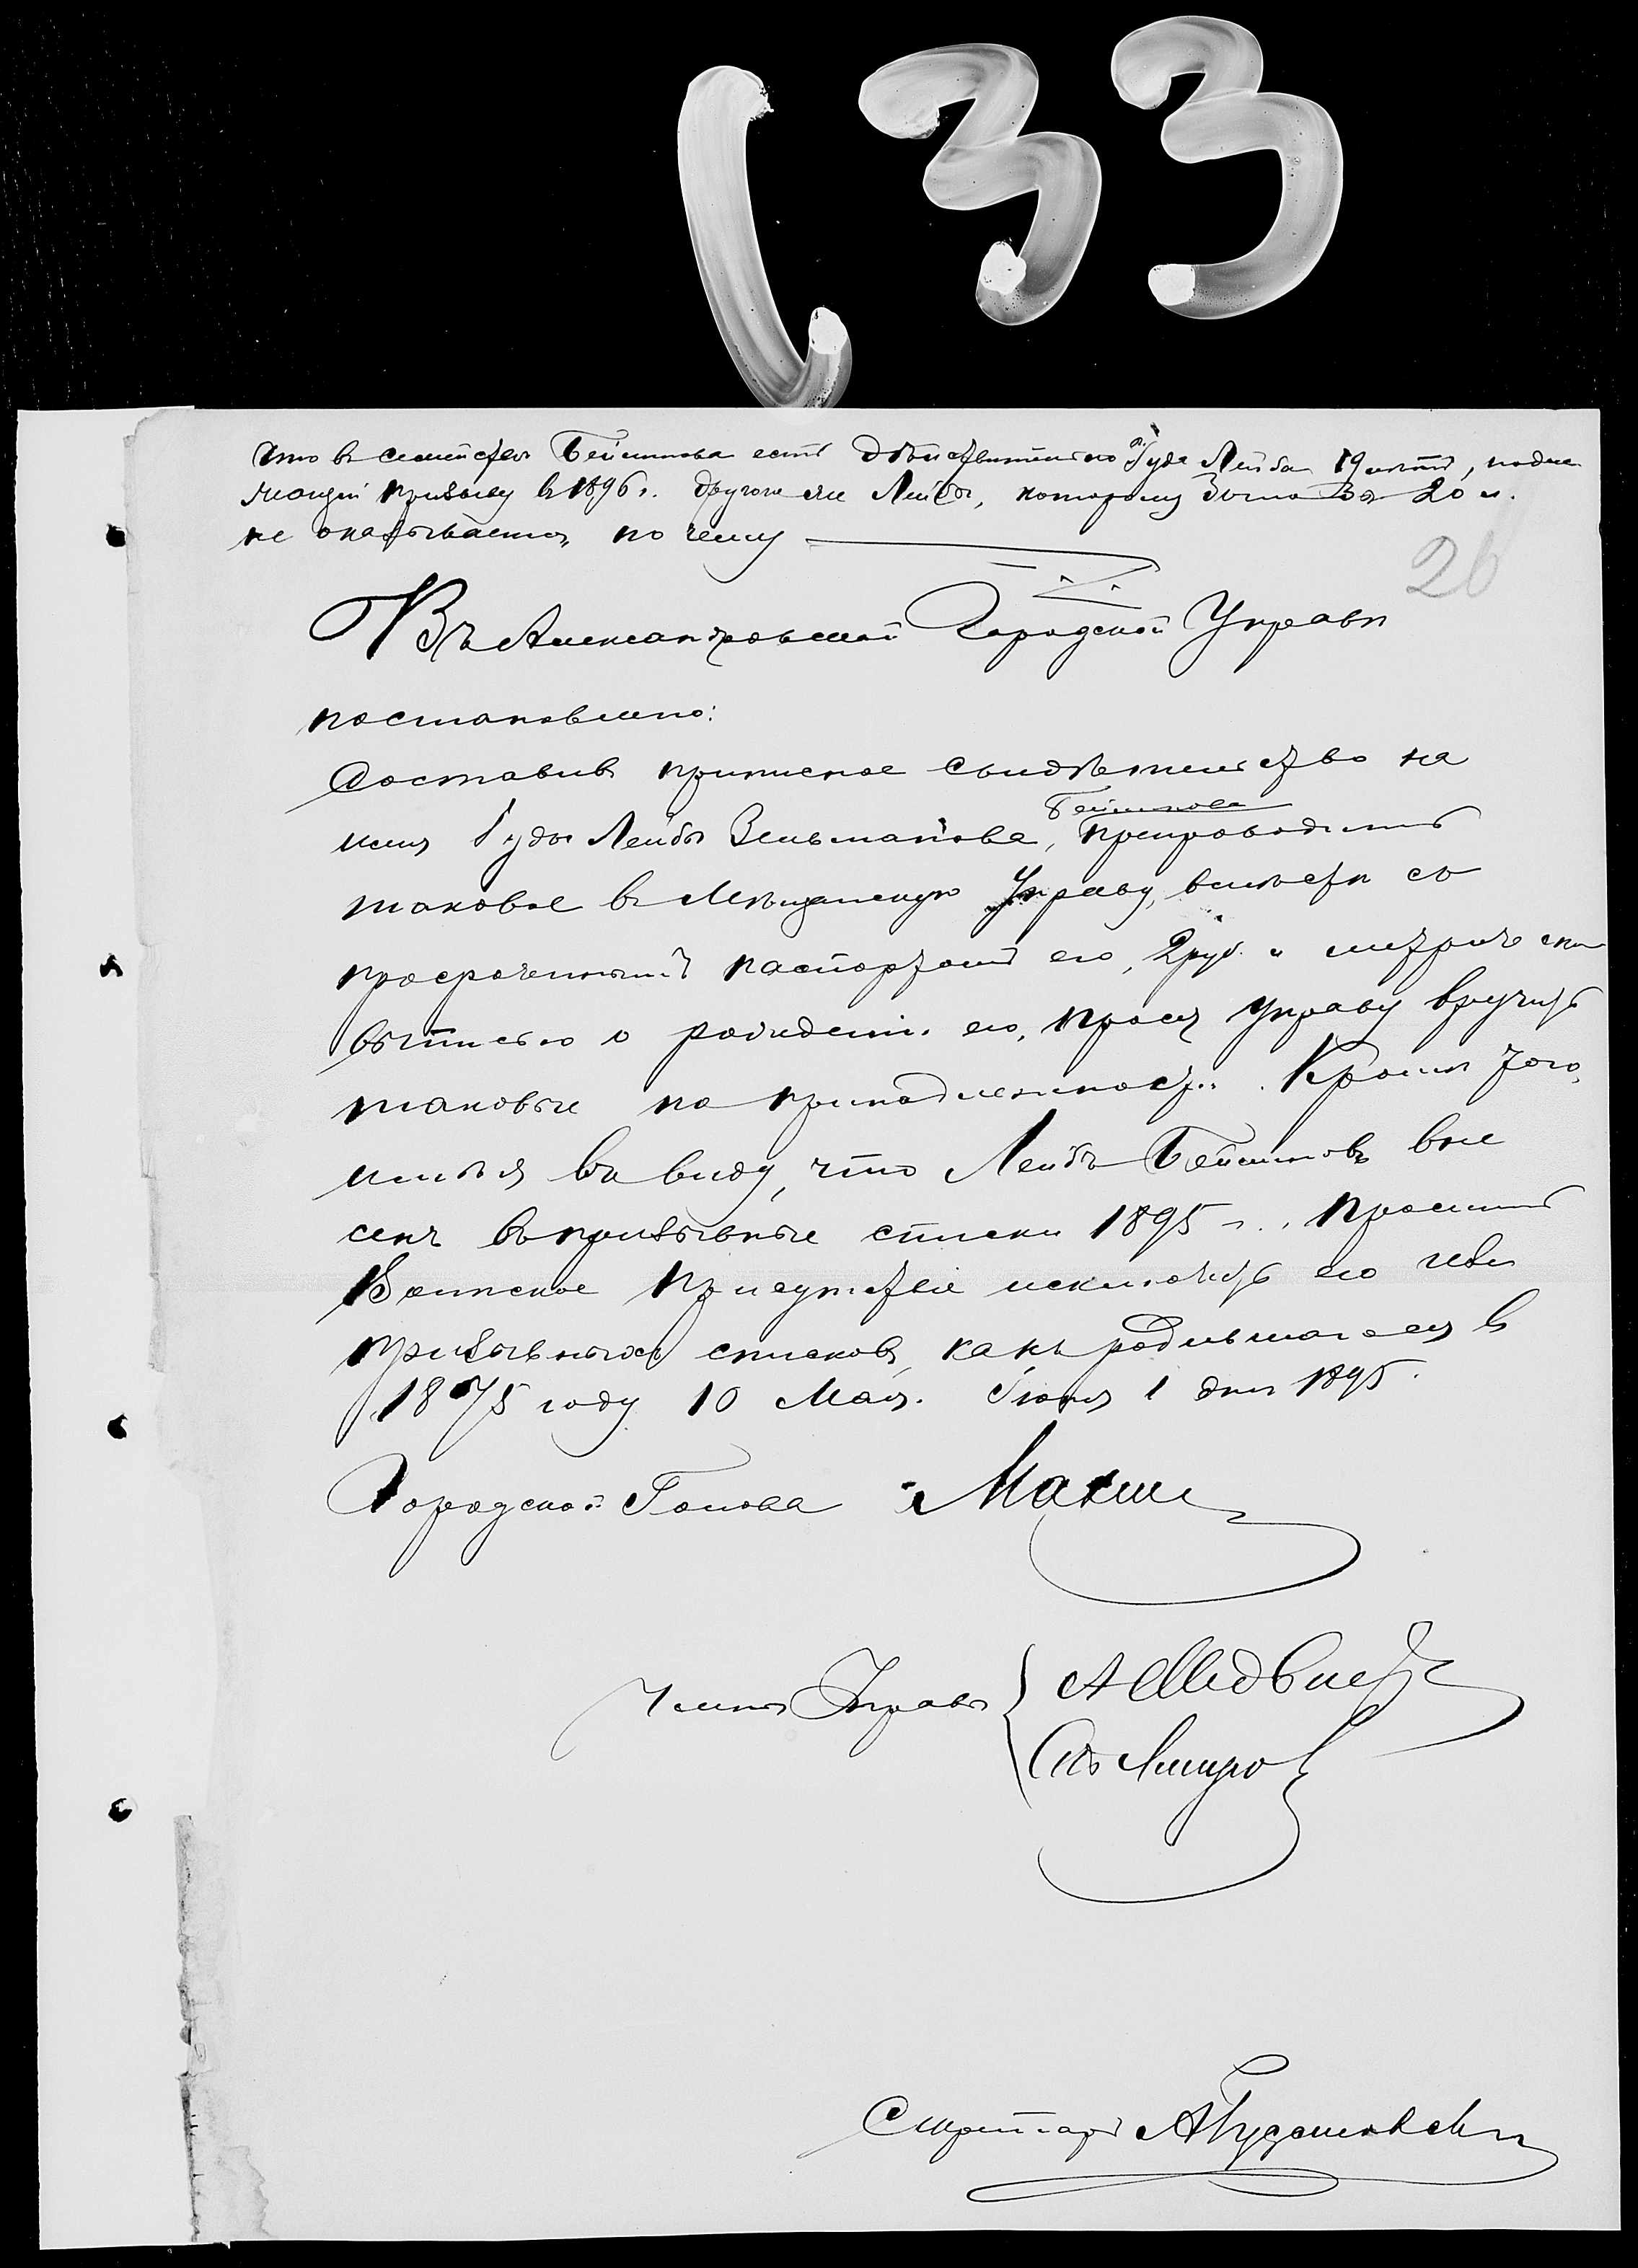 133
что въ семействѣ Беймикова есть дѣйствительно Іуда Лейба 19 лѣтъ, подле
жащій призыву въ 1896 г. другого же Лейбы, которому было бы 20 л.
не оказывается, по чему
26
Въ Александровской Городской Управѣ
постановлено:
Доставивъ приписное свидѣтельство на
имя Іуды Лейбы Зельманова, Беймикова препроводить
таковое въ Мѣщанскую Управу, вмѣстѣ съ
просроченнымъ паспортомъ его, 2 руб. и метрическ
выписью о рожденіи его, прося Управу вручить
таковые по принадлежности. Кромѣ того,
имѣя въ виду, что Лейба Беймиковъ вне
сенъ въ призывные списки 1895 г., просить
Воинское Присутствіе исключить его изъ
призывныхъ списковъ, какъ родившагося въ
1875 году 10 Мая. Іюня 1 дня 1895.
Городской Голова
Члены Управы
Секретарь